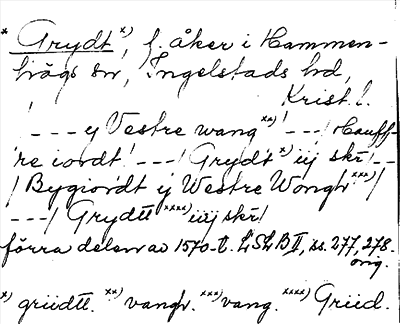 * Grydt x), f. åker i Hammen-
högs sn, Ingelstads hd,
Krist. l.
/ - - - y Vestre wang xx) / - - - / Hauff-
re iordt / - - - / Grydt x) iij skr / - -
/ Bygiordt ij Westre Wongh xxx) /
- - - / Grydtt xxxx) iiij skr /
förra delen av 1570-t. LSLB II, ss. 277, 278.
orig.
x) grüdtt. xx) vangh. xxx) vang. xxxx) Grüd.